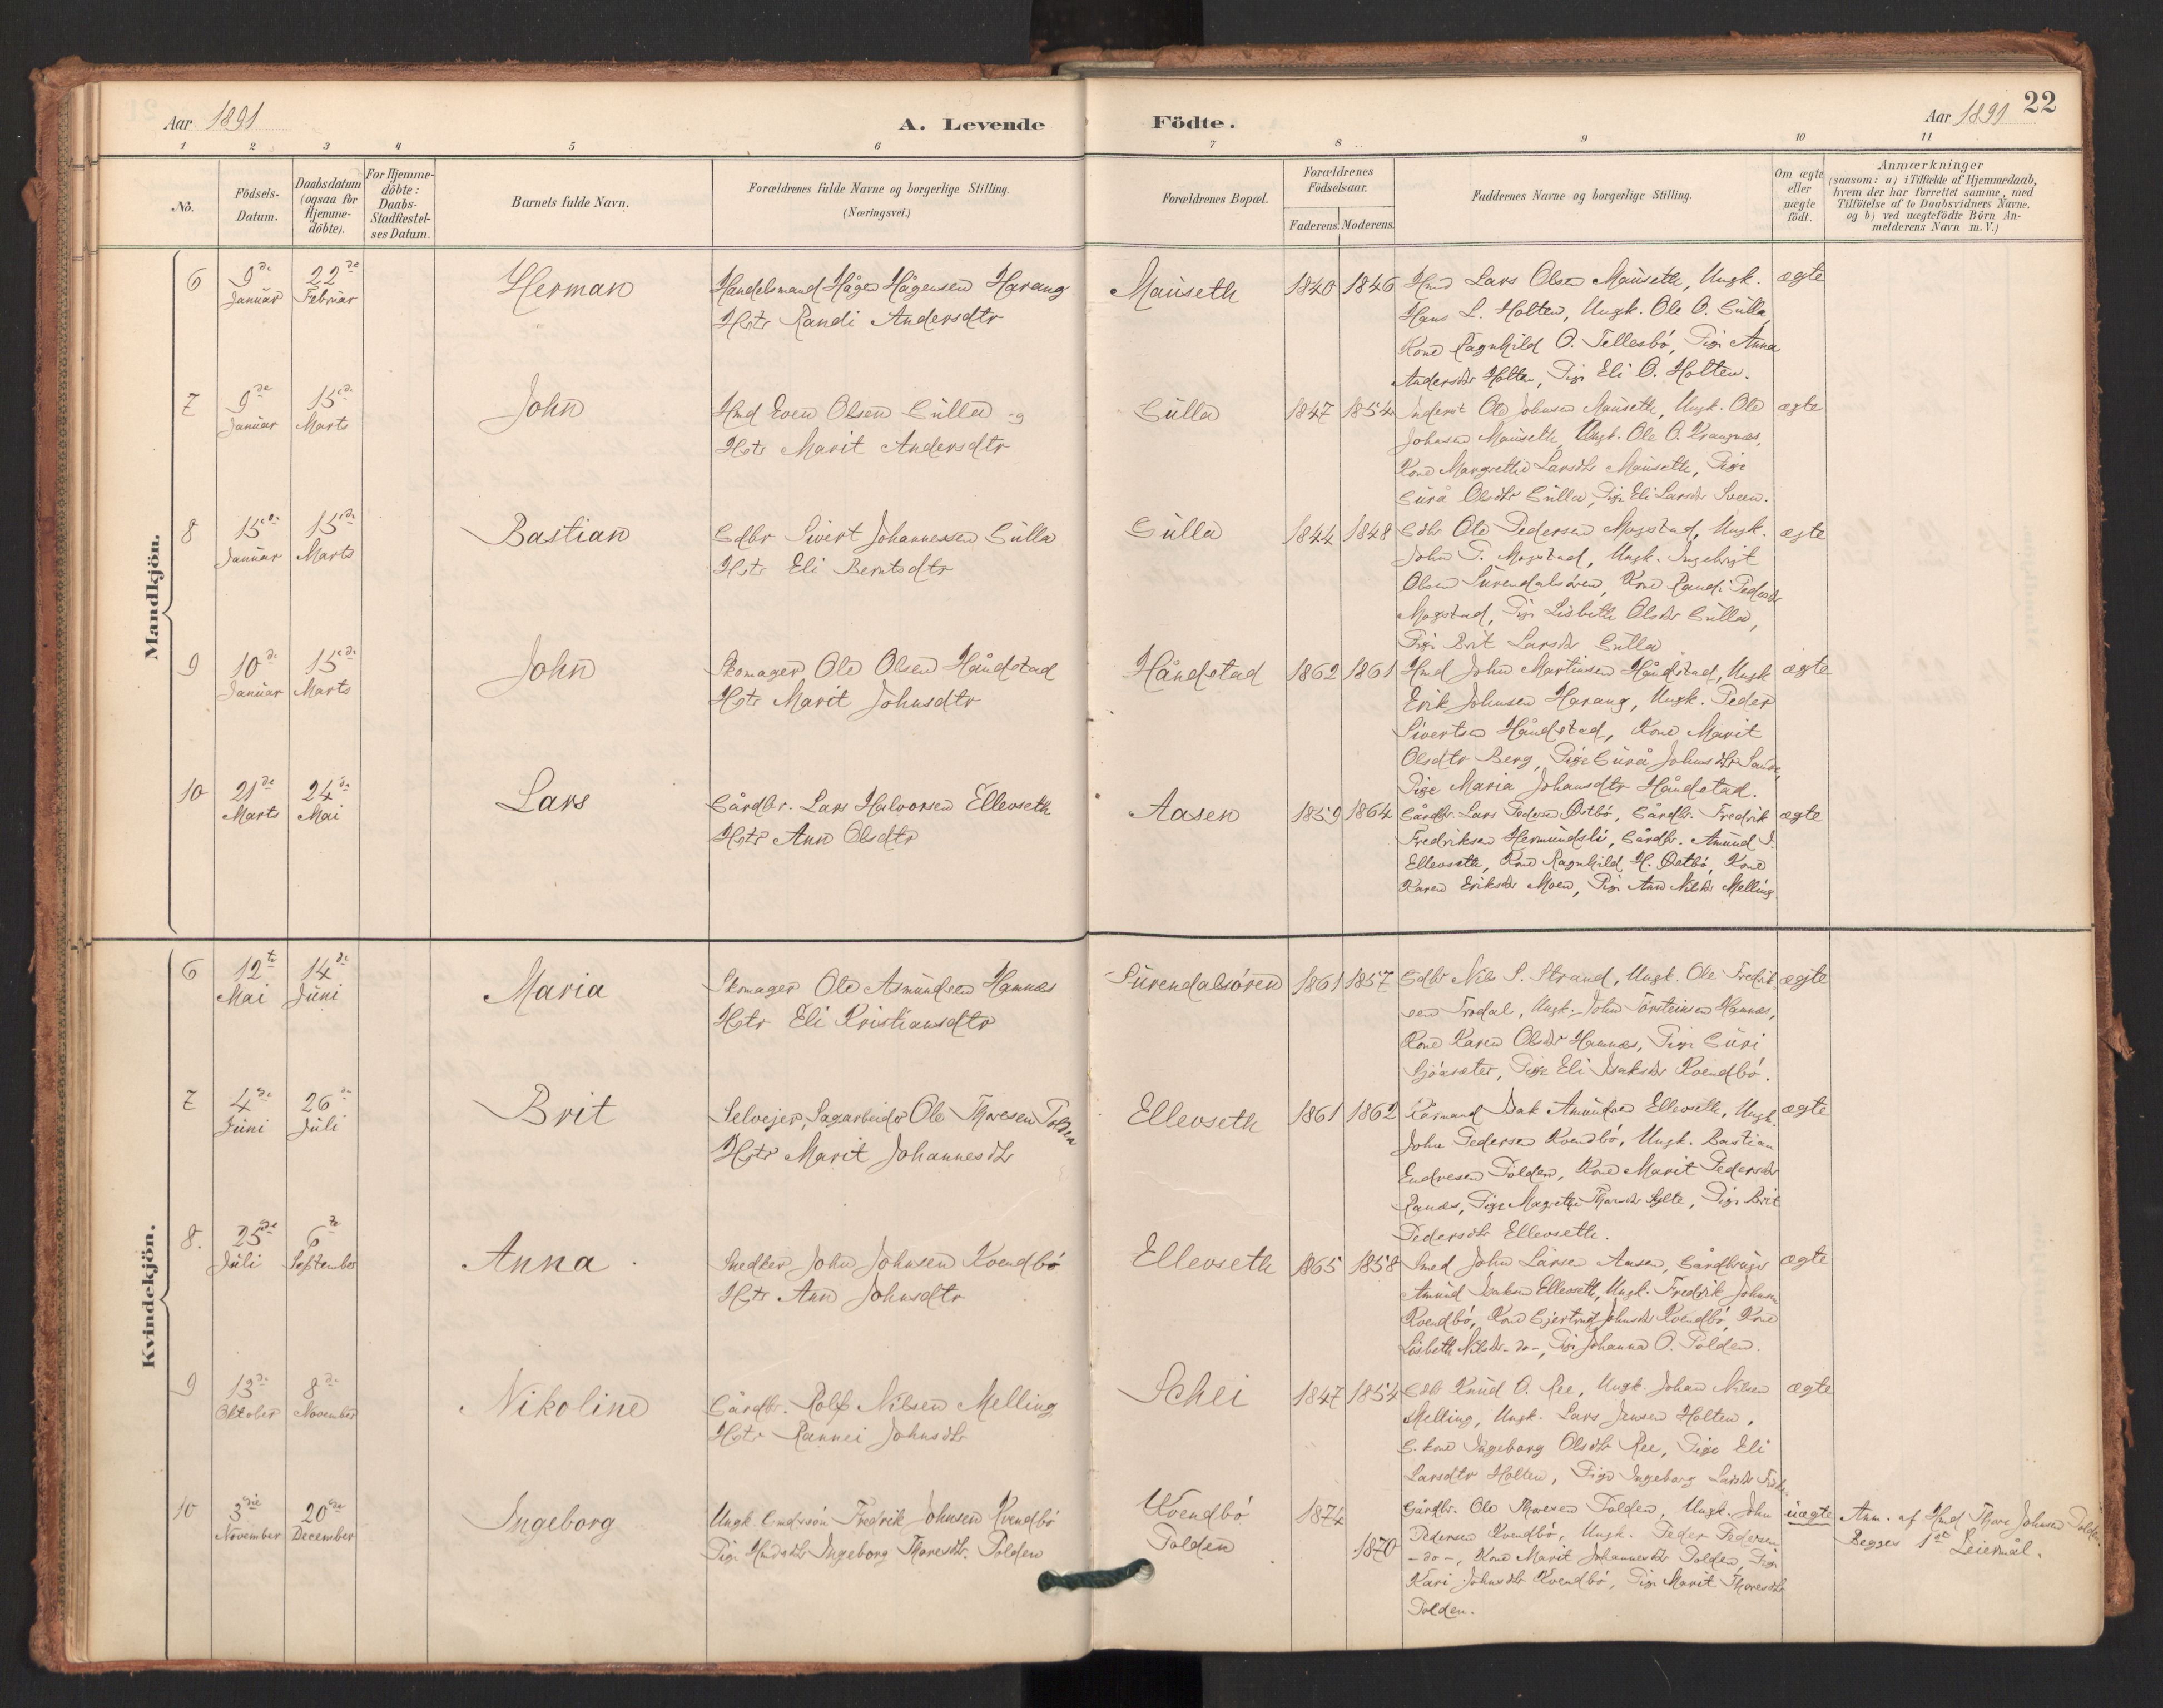 Aar 1891
A. Levende Födte.
Aar 1891 22
1 2 3 4 5 6 7 8 9 10 11
No.
Födsels-Datum.
Daabsdatum (ogsaa for Hjemme-döbte).
For Hjemme-döbte: Daabs-Stadfæstel-ses Datum.
Barnets fulde Navn.
Forældrenes fulde Navne og borgerlige Stilling.
(Næringsvei.)
Forældrenes Bopæl.
Forældrenes Födselsaar.
Faderens. Moderens.
Faddernes Navne og borgerlige Stilling.
Om ægte eller uægte födt.
Anmærkninger
(saasom: a) i Tilfælde af Hjemmedaab,
hvem der har forrettet samme, med
Tilföielse af to Daabsvidners Navne,
og b) ved uægtefödte Börn An-
melderens Navn m. V.)
Mandkjön.
6 9de Januar 22de Februar Herman
Handelsmand Hågen Hågensen Harang
Hstr Randi Andersdtr
Mauseth 1840 1846
Hmd Lars Olsen Mauseth, Ungk.
Hans L. Holten, Ungk. Ole O. Gulla,
Kone Ragnhild O. Tellesbö, Pige Anna
Andersdtr Holten, Pige Eli O. Holten.
ægte
7 9de Januar 15de Marts John
Hmd Even Olsen Gulla og
Hstr Marit Andersdtr
Gulla 1847 1854
Inderst Ole Johnsen Mauseth, Ungk. Ole
Johnsen Mauseth, Ungk. Ole O. Krangnes,
Kone Margrethe Larsdtr Mauseth, Pige
Gurå Olsdtr Gulla, Pige Eli Larsdtr Sveen.
ægte
8 15de Januar 15de Marts Bastian
Gdbr Sivert Johannessen Gulla
Hstr Eli Berntsdtr
Gulla 1844 1848
Gdbr Ole Pedersen Mogstad, Ungk.
John P. Mogstad, Ungk. Ingebrigt
Olsen Surendalsören, Kone Randi Pedersdtr
Mogstad, Pige Lisbeth Olsdtr Gulla,
Pige Brit Larsdtr Gulla
ægte
9 10de Januar 15de Marts John
Skomager Ole Olsen Håndstad
Hstr Marit Johnsdtr
Håndstad 1862 1861
Hmd John Martinsen Håndstad, Ungk
Erik Johnsen Harang, Ungk. Peder
Sivertsen Håndstad, Kone Marit
Olsdtr Berg, Pige Gurå Johnsdtr Sande,
Pige Maria Johansdtr Håndstad.
ægte
10 21de Marts 24de Mai Lars
Gårdbr. Lars Halvorsen Ellevseth
Hstr Ann Olsdtr
Aasen 1859 1864
Gårdbr. Lars Pedersen Östbö, Gårdbr. Fredrik
Fredriksen Hermundsli, Gårdbr. Amund I.
Ellevseth, Kone Ragnhild H. Östbö, Kone
Karen Eriksdtr Moen, Pige Ann Nilsdtr Melling
ægte
Kvindekjön.
6 12te Mai 14de Juni Maria
Skomager Ole Asmundsen Hamnes
Hstr Eli Kristiansdtr
Surendalsören 1861 1857
Gdbr Nils S. Strand, Ungk. Ole Fredrik-
sen Trödal, Ungk. John Torsteinsen Hamnes,
Kone Karen Olsdtr Hamnes, Pige Guri
Sjösæter, Pige Eli Isaksdtr Kvendbö.
ægte
7 4de Juni 26de Juli Brit
Selvejer, Sagarbeider Ole Thoresen Polden
Hstr Marit Johannesdtr
Ellevseth 1861 1862
Kårmand Isak Amundsen Ellevseth, Ungk.
John Pedersen Kvendbö, Ungk. Bastian
Endresen Polden, Kone Marit Pedersdtr
Ranæs, Pige Magrethe Thoresdtr, Pige Brit
Pedersdtr Ellevseth.
ægte
8. 25de Juli 6te September Anna
Snedker John Johnsen Kvendbö
Hstr Ann Johnsdtr
Ellevseth 1865 1858
Smed John Larsen Aasen, Gårdbruger
Amund Isaksen Ellevseth, Ungk. Fredrik Johnsen
Kvendbö, Kone Gjertrud Johnsdtr Kvendbö, Kone
Lisbeth Nilsdtr -do-, Pige Johanna O. Polden.
ægte
9 13de Oktober 8de November Nikoline
Gårdbr. Rolf Nilsen Melling
Hstr Rannei Johnsdtr
Schei 1847 1854
Gdbr Knud O. Ree, Ungk. Johan Nilsen
Melling, Ungk. Lars Jensen Holten,
G. kone Ingeborg Olsdtr Ree, Pige Eli
Larsdtr Holten, Pige Ingeborg Larsdtr
ægte
10 3die November 20de December Ingeborg
Ungk. Fredrik Johnsen Kvendbö
Pige Hmdsdtr Ingeborg Thoresdtr. Polden
Kvendbö 1874
Polden 1870
Gårdbr. Ole Thoresen Polden, Ungk. John
Pedersen Kvendbö, Ungk. Peder Pedersen
-do-, Kone Marit Johannesdtr Polden, Pige
Kari Johnsdtr Kvendbö, Pige Marit Thoresdtr
Polden.
uægte
Anm. af Hmd Thore Johnsen Polden
Begges 1st Leiermål.